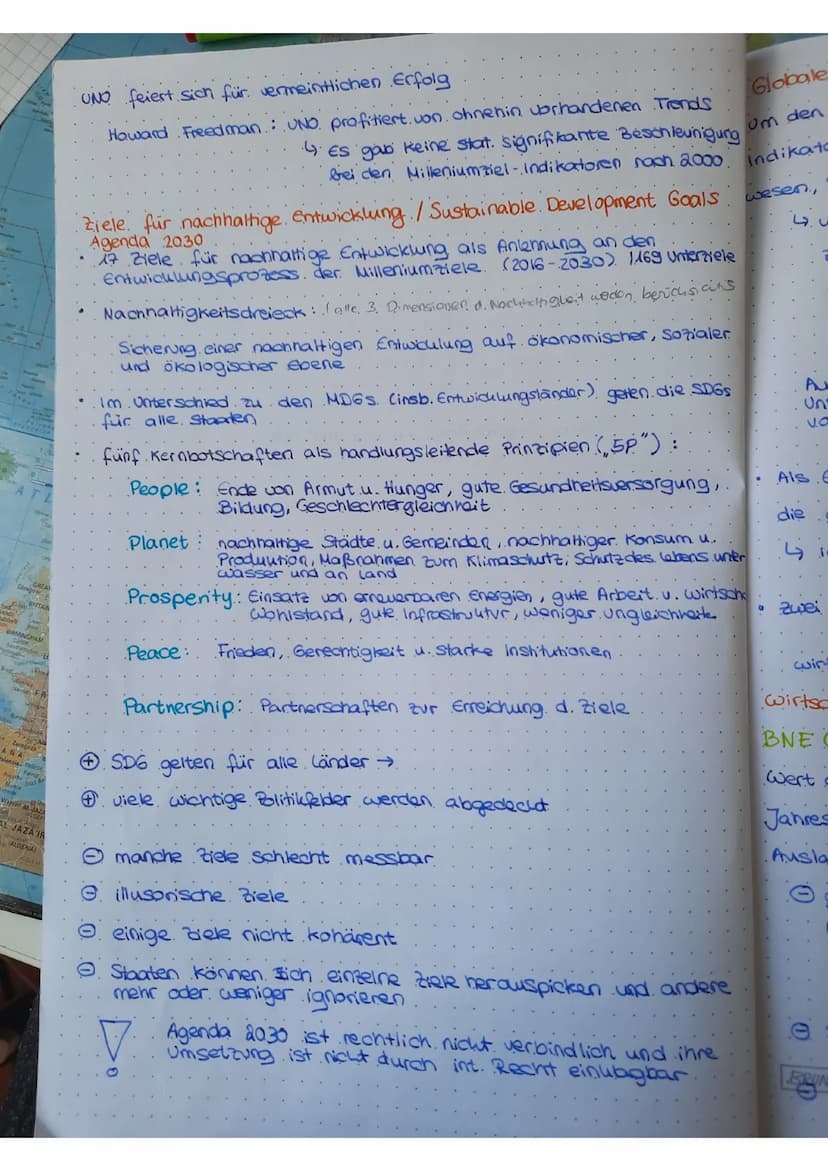 UNO feiert sich für vermeintlichen Erfolg
Howard Freedman: UNO profitiert von ohnehin vorhandenen Trends
↳ Es gab keine stat. signifikante Beschleunigung
bei den Milleniumziel-Indikatoren nach 2000
Ziele für nachhaltige Entwicklung / Sustainable Development Goals
Agenda 2030
• 17 Ziele für nachhaltige Entwicklung als Anlehnung an den
Entwicklungsprozess der Milleniumziele. (2016-2030) 169 Unterziele
• Nachhaltigkeitsdreieck: (alle 3 Dimensionen d. Nachhaltigkeit werden berücksicht
Sicherung einer nachhaltigen Entwicklung auf ökonomischer, sozialer
und ökologischer Ebene
• Im Unterschied zu den MDGs (insb. Entwicklungsländer) gelten die SDGs
für alle Staaten
• fünf Kernbotschaften als handlungsleitende Prinzipien („5P"):
People: Ende von Armut u. Hunger, gute Gesundheitsversorgung,
Bildung, Geschlechtergleichheit
Planet: nachhaltige Städte u. Gemeinden, nachhaltiger Konsum u.
Produktion, Maßnahmen zum Klimaschutz, Schutz des Lebens unter
Wasser und an Land
Prosperity: Einsatz von erneuerbaren Energien, gute Arbeit u. wirtsch
Wohlstand, gute Infrastruktur, weniger Ungleichheit
Peace: Frieden, Gerechtigkeit u. starke Institutionen
Partnership: Partnerschaften zur Erreichung d. Ziele
⊕ SDG gelten für alle Länder →
⊕ viele wichtige Politikfelder werden abgedeckt
⊖ manche Ziele schlecht messbar
⊖ illusorische Ziele
⊖ einige Ziele nicht kohärent
⊖ Staaten können sich einzelne Ziele herauspicken und andere
mehr oder weniger ignorieren
! Agenda 2030 ist rechtlich nicht verbindlich und ihre
Umsetzung ist nicht durch int. Recht einklagbar
Globale
um den
Indikato
wesen,
Au
Un
vo
• Als
die
↳ i
• zwei
wir
Wirtsc
BNE (
Wert
Jahres
Ausla
⊖
⊖